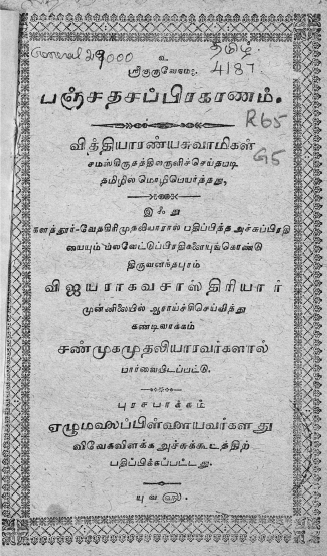 General 29000
தமிழ்
4187.
உ
ஸ்ரீகுருவேநம:
பஞ்சதசப்பிரகரணம்.
R65
வித்தியாரண்யசுவாமிகள்
G5
சமஸ்கிருதத்திலருளிச்செய்தபடி
தமிழில்மொழிபெயர்த்தது,
இஃது
களத்தூர்-வேதகிரிமுதலியாரால் பதிப்பித்த அச்சுப்பிரதி
யையும் பலவேட்டுப்பிரதிகளையுங்கொண்டு
திருவனந்தபுரம்
விஜயராகவசாஸ்திரியார்
முன்னிலையில் ஆராய்ச்சிசெய்வித்து
கண்டிலாக்கம்
சண்முகமுதலியாரவர்களால்
பார்வையிடப்பட்டு.
புரசபாக்கம்
ஏழுமலைப்பிள்ளையவர்களது
விவேகவிளக்க அச்சுக்கூடத்திற்
பதிப்பிக்கப்பட்டது.
யுவ௵.